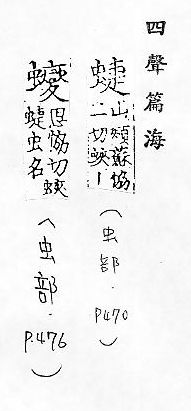 四聲篇海
蜨
山頰蘇協
二切蛺丨
(虫部.P470)
思協切蛺
蜨虫名
(虫部.P.476)